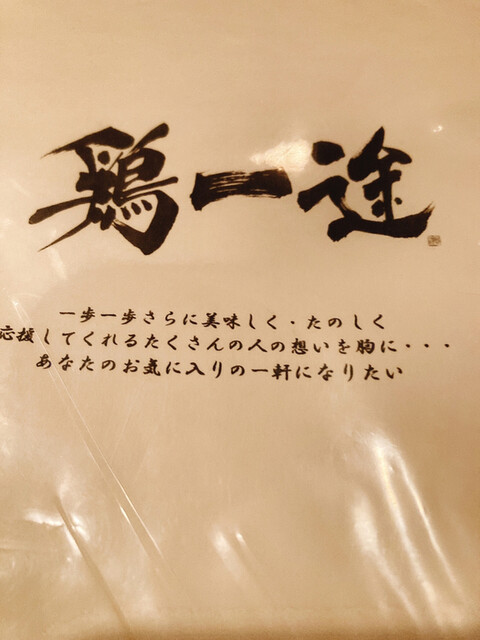 鶏一途
一歩一歩さらに美味しく・たのしく
応援してくれるたくさんの人の想いを胸に・・・
あなたのお気に入りの一軒になりたい